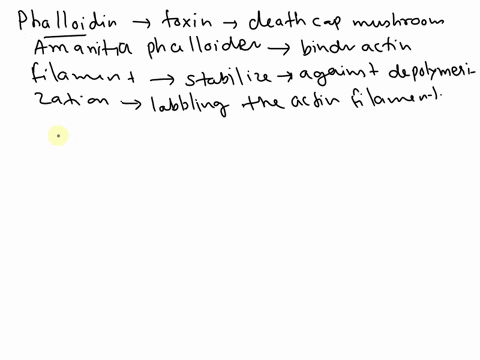 Phalloidin → toxin → death cap mushroom
Amanita phalloider → bindr actin
filament → stabilize → against depolymeri-
zation → labbling the actin filament.